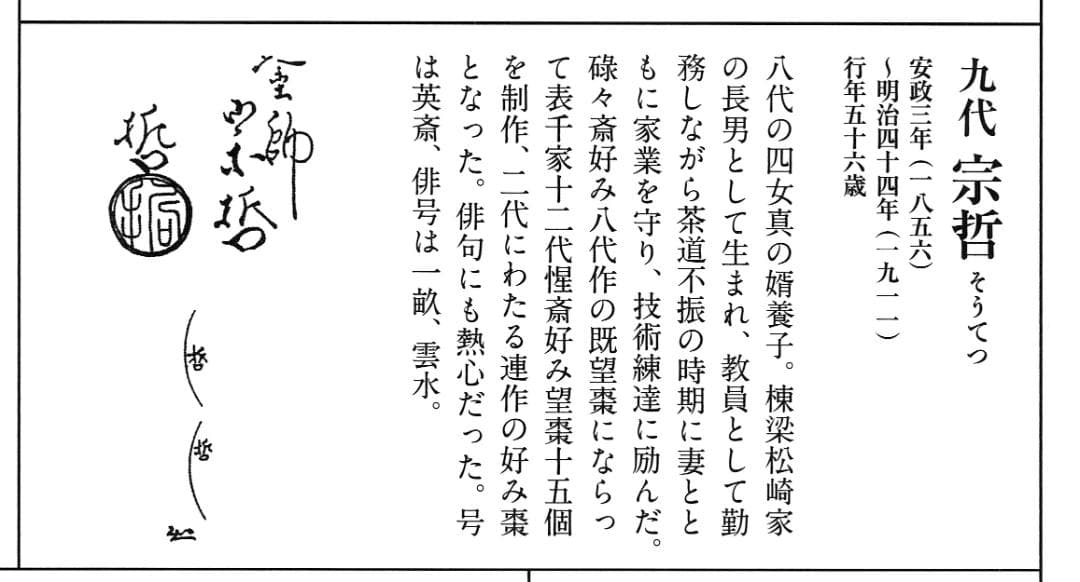 九代 宗哲 そうてつ
安政三年（一八五六）
～明治四十四年（一九一一）
行年五十六歳
八代の四女真の婿養子。棟梁松崎家
の長男として生まれ、教員として勤
務しながら茶道不振の時期に妻とと
もに家業を守り、技術練達に励んだ。
碌々斎好み八代作の既望棗にならっ
て表千家十二代惺斎好み望棗十五個
を制作、二代にわたる連作の好み棗
となった。俳句にも熱心だった。号
は英斎、俳号は一畝、雲水。
宗哲
哲
哲
哲
哲